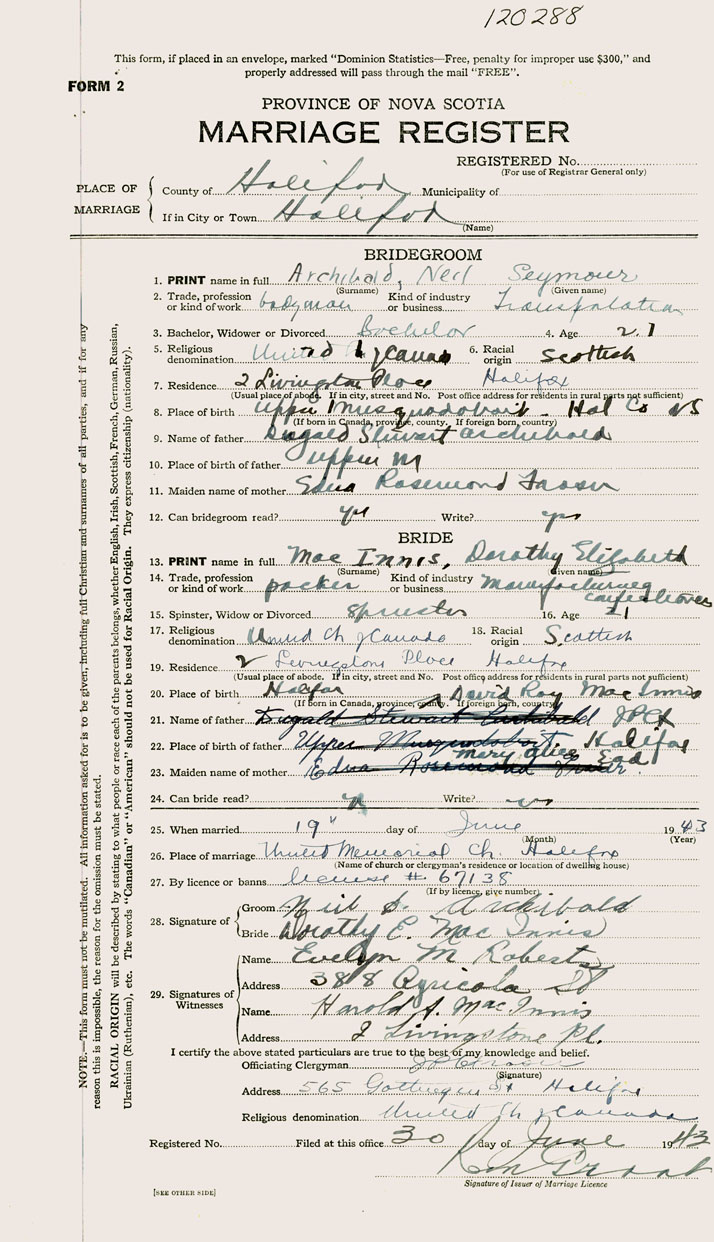 120288
This form, if placed in an envelope, marked "Dominion Statistics—Free, penalty for improper use $300," and
properly addressed will pass through the mail "FREE".
FORM 2
PROVINCE OF NOVA SCOTIA
MARRIAGE REGISTER
REGISTERED No.
(For use of Registrar General only)
PLACE OF MARRIAGE
County of Halifax Municipality of
If in City or Town Halifax
(Name)
BRIDEGROOM
1. PRINT name in full Archibald, Neil Seymour
(Surname) (Given name)
2. Trade, profession or kind of work bodyman Kind of industry or business Transpotation
3. Bachelor, Widower or Divorced Bachelor 4. Age 21
5. Religious denomination United Canada 6. Racial origin Scottish
7. Residence 2 Livingston Place Halifax
(Usual place of abode. If in city, street and No. Post office address for residents in rural parts not sufficient)
8. Place of birth Upper Musquodoboit - Hal Co NS
(If born in Canada, province, county. If foreign born, country)
9. Name of father Dugald Stewart Archibald
10. Place of birth of father Upper M
11. Maiden name of mother Edna Rosemond Fraser
12. Can bridegroom read? yes Write? yes
BRIDE
13. PRINT name in full Mac Innis, Dorothy Elizabeth
(Surname) (Given name)
14. Trade, profession or kind of work packer Kind of industry or business Manufacturing
15. Spinster, Widow or Divorced Spinster 16. Age 21
17. Religious denomination United Ch of Canada 18. Racial origin Scottish
19. Residence 2 Livingstone Place Halifax
(Usual place of abode. If in city, street and No. Post office address for residents in rural parts not sufficient)
20. Place of birth Halifax
(If born in Canada, province, county. If foreign born, country)
David Roy Mac Innis
21. Name of father Dugald Stewart Archibald
22. Place of birth of father Upper Musquodoboit. Halifax
Mary Alice
23. Maiden name of mother Edna Rosemond Fraser
24. Can bride read? Write?
25. When married 19" day of June 1943
(Month) (Year)
26. Place of marriage United Memorial Ch. Halifax
(Name of church or clergyman's residence or location of dwelling house)
27. By licence or banns license # 67138
(If by licence, give number)
28. Signature of
Groom Neil S. Archibald
Bride Dorothy E. Mac Innis
29. Signatures of Witnesses
Name Evelyn M Roberts
Address 388 Agricola St
Name Harold A. Mac Innis
Address 2 Livingstone Pl.
I certify the above stated particulars are true to the best of my knowledge and belief.
Officiating Clergyman
(Signature)
Address 565 Gottingen St Halifax
Religious denomination United Ch of Canada
Registered No. Filed at this office 30 day of June 1943
Signature of Issuer of Marriage Licence
[SEE OTHER SIDE]
NOTE.—This form must not be mutilated. All information asked for is to be given, including full Christian and surnames of all parties, and if for any
reason this is impossible, the reason for the omission must be stated.
RACIAL ORIGIN will be described by stating to what people or race each of the parents belongs, whether English, Irish, Scottish, French, German, Russian,
Ukrainian (Ruthenian), etc. The words "Canadian" or "American" should not be used for Racial Origin. They express citizenship (nationality).